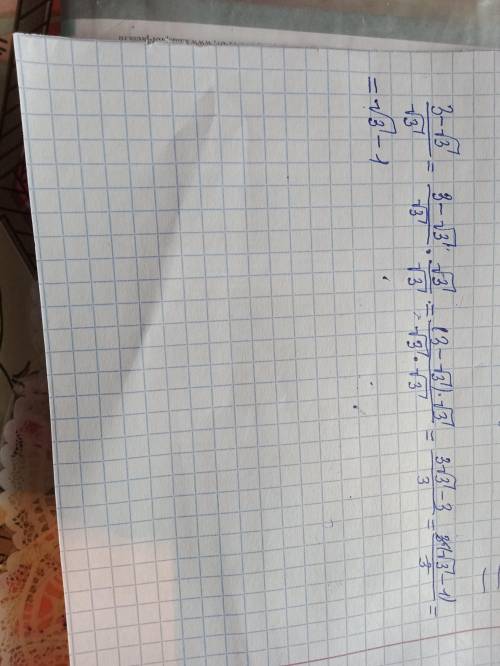 (3-√3)/√3 = (3-√3)/√3 · √3/√3 = ((3-√3)·√3)/(√3·√3) = (3√3-3)/3 = 3(√3-1)/3 =
= √3 - 1